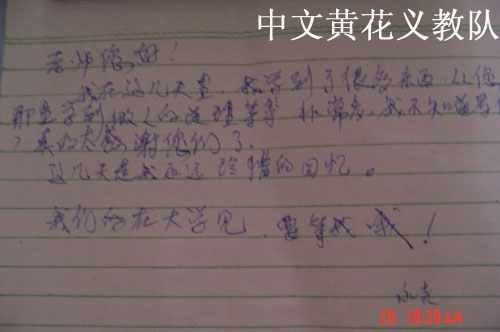 中文黄花义教队
老师您好！
我在这几天里，我学到了很多东西，从您
那里学到做人的道理等等 非常多，我不知道写
？真的太感谢你们了。
这几天是我永远珍惜的回忆。
我们约在大学见，要等我哦！
20 10:20AM